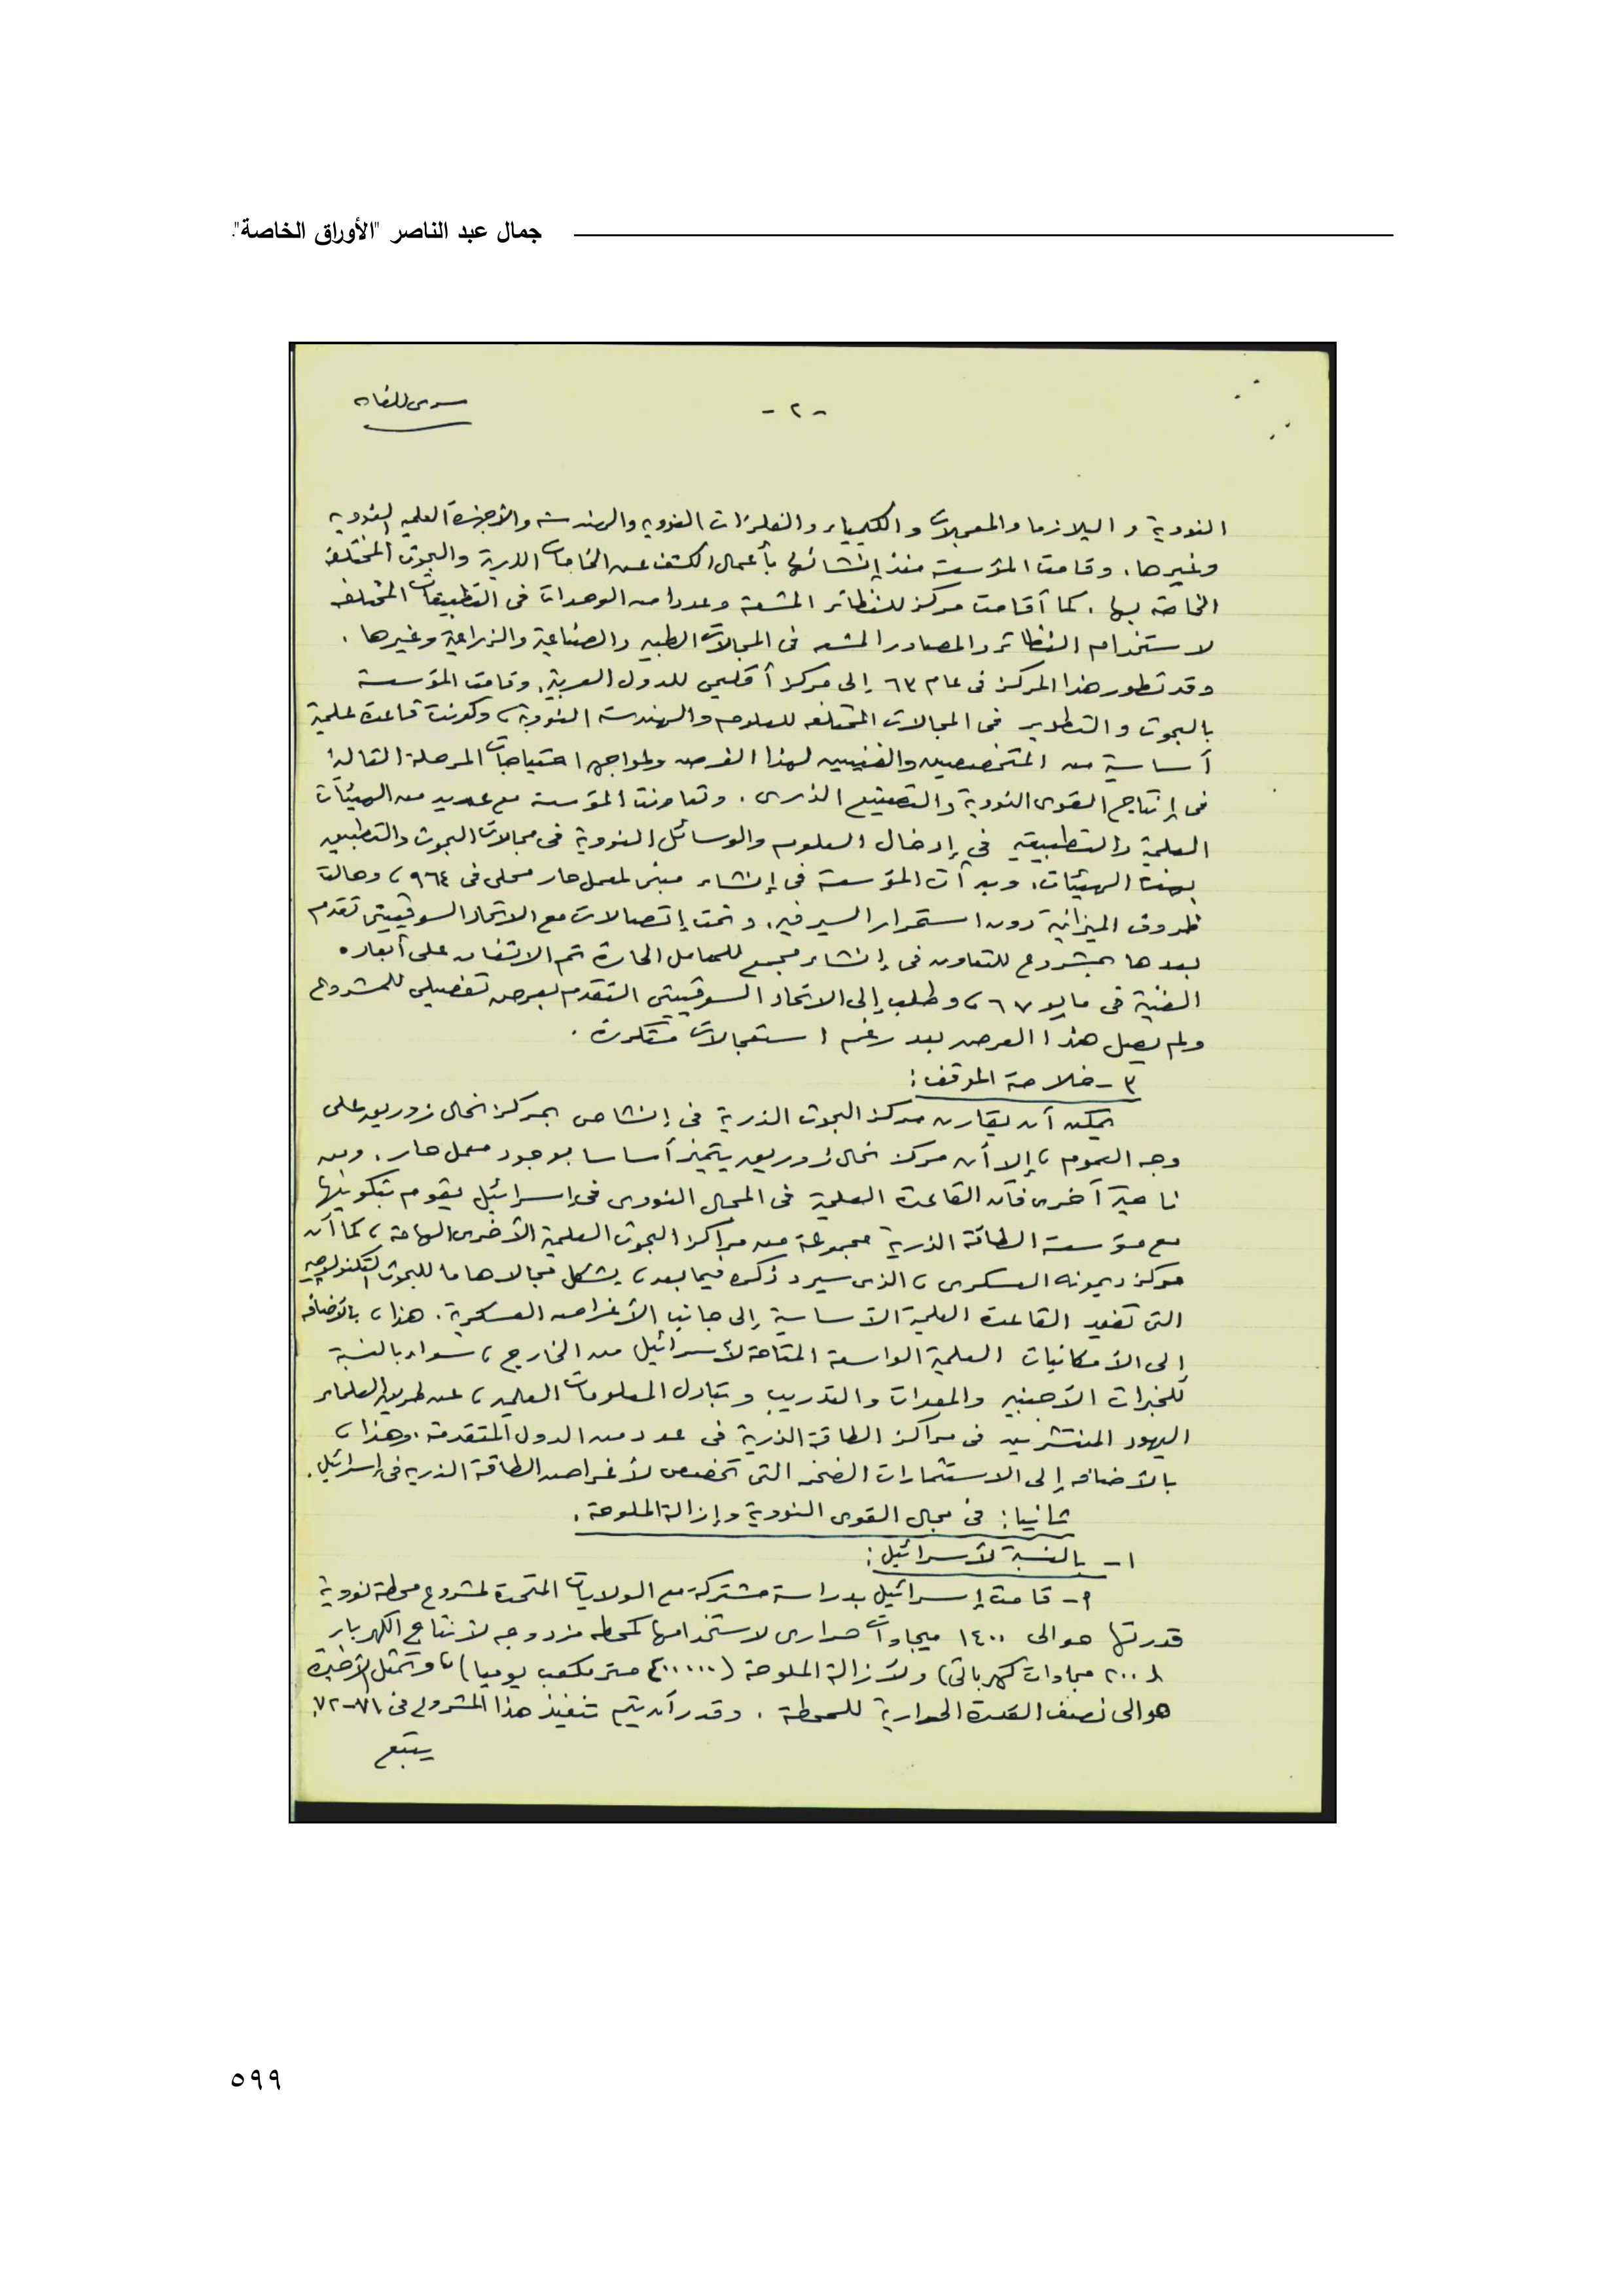 جمال عبد الناصر "الأوراق الخاصة".
سرى للغاية
- ٢ -
النووية والبلازما والمعجلات والكيمياء والفلزات النوويه والهندسة والأجهزة العلميه النوويه
وغيرها. وقامت المؤسسة منذ إنشائها بأعمال الكشف عن الخامات الذرية والبحوث المختلفه
الخاصة بها. كما أقامت مركز للنظائر المشعة وعددا من الوحدات فى التطبيقات المختلفه
لاستخدام النظائر والمصادر المشعه فى المجالات الطبيه والصناعية والزراعية وغيرها.
وقد تطور هذا المركز فى عام ٦٣ إلى مركز أقليمى للدول العربية. وقامت المؤسسة
بالبحوث والتطوير فى المجالات المختلفه للعلوم والهندسة النووية، وكونت قاعدة علمية
أساسية من المتخصصين والفنيين لهذا الغرض ولمواجهة احتياجات المرحلة التالية
فى إنتاج القوى النووية والتصنيع الذرى. وتعاونت المؤسسة مع عديد من الهيئات
العلمية والتطبيقيه فى إدخال العلوم والوسائل النووية فى مجالات البحوث والتطبيق
بهذه الهيئات. وبدأت المؤسسة فى إنشاء مبنى لمعمل حار محلى فى ٩٦٤، وحالت
ظروف الميزانية دون استمرار السير فيه. وتمت إتصالات مع الاتحاد السوڤييتى تقدم
بعدها بمشروع للتعاون فى إنشاء مجمع للمعامل الحارة تم الاتفاق على أبعاده
الفنية فى مايو ٦٧، وطلب إلى الاتحاد السوڤييتى التقدم بعرض تفصيلى للمشروع
ولم يصل هذا العرض بعد رغم استعجالات متكررة.
٣ - خلاصة الموقف:
يمكن أن يقارن مركز البحوث الذرية فى إنشاص بمركز نحال زوريق على
وجه العموم، إلا أن مركز نحال زوريق يتميز أساسا بوجود معمل حار. ومن
ناحية آخرى فأن القاعدة العلمية فى المجال النووى فى إسرائيل يقوم بتكوينها
مع مؤسسة الطاقة الذرية مجموعة من مراكز البحوث العلمية الأخرى الهامة، كما أن
مركز ديمونه العسكرى، الذى سيرد ذكره فيما بعد، يشكل مجالا هاما للبحوث التكنولوجيه
التى تفيد القاعدة العلمية الأساسية إلى جانب الأغراض العسكرية. هذا، بالأضافه
إلى الأمكانيات العلمية الواسعة المتاحة لأسرائيل من الخارج، سواء بالنسبة
للخبرات الأجنبيه والمعدات والتدريب وتبادل المعلومات العلميه، عن طريق العلماء
اليهود المنتشرين فى مراكز الطاقة الذرية فى عدد من الدول المتقدمة. وهذا،
بالأضافه إلى الاستثمارات الضخمه التى تخصص لأغراض الطاقة الذريه فى إسرائيل.
ثانيا: فى مجال القوى النووية وإزالة الملوحة.
١ - بالنسبة لأسرائيل:
٩ - قامت إسرائيل بدراسة مشتركة مع الولايات المتحدة لمشروع محطة نووية
قدرتها حوالى ١٤٠٠ ميجاوات حرارى لاستخدامها كمحطه مزدوجه لأنتاج الكهرباء
(٢٠٠ ميجاوات كهربائى) ولأزالة الملوحة (٤٠٠٠٠٠ متر مكعب يوميا)، وتمثل الأخيرة
حوالى نصف القدرة الحرارية للمحطة. وقدر أن يتم تنفيذ هذا المشروع فى ٧١-٧٢.
يتبع
٥٩٩